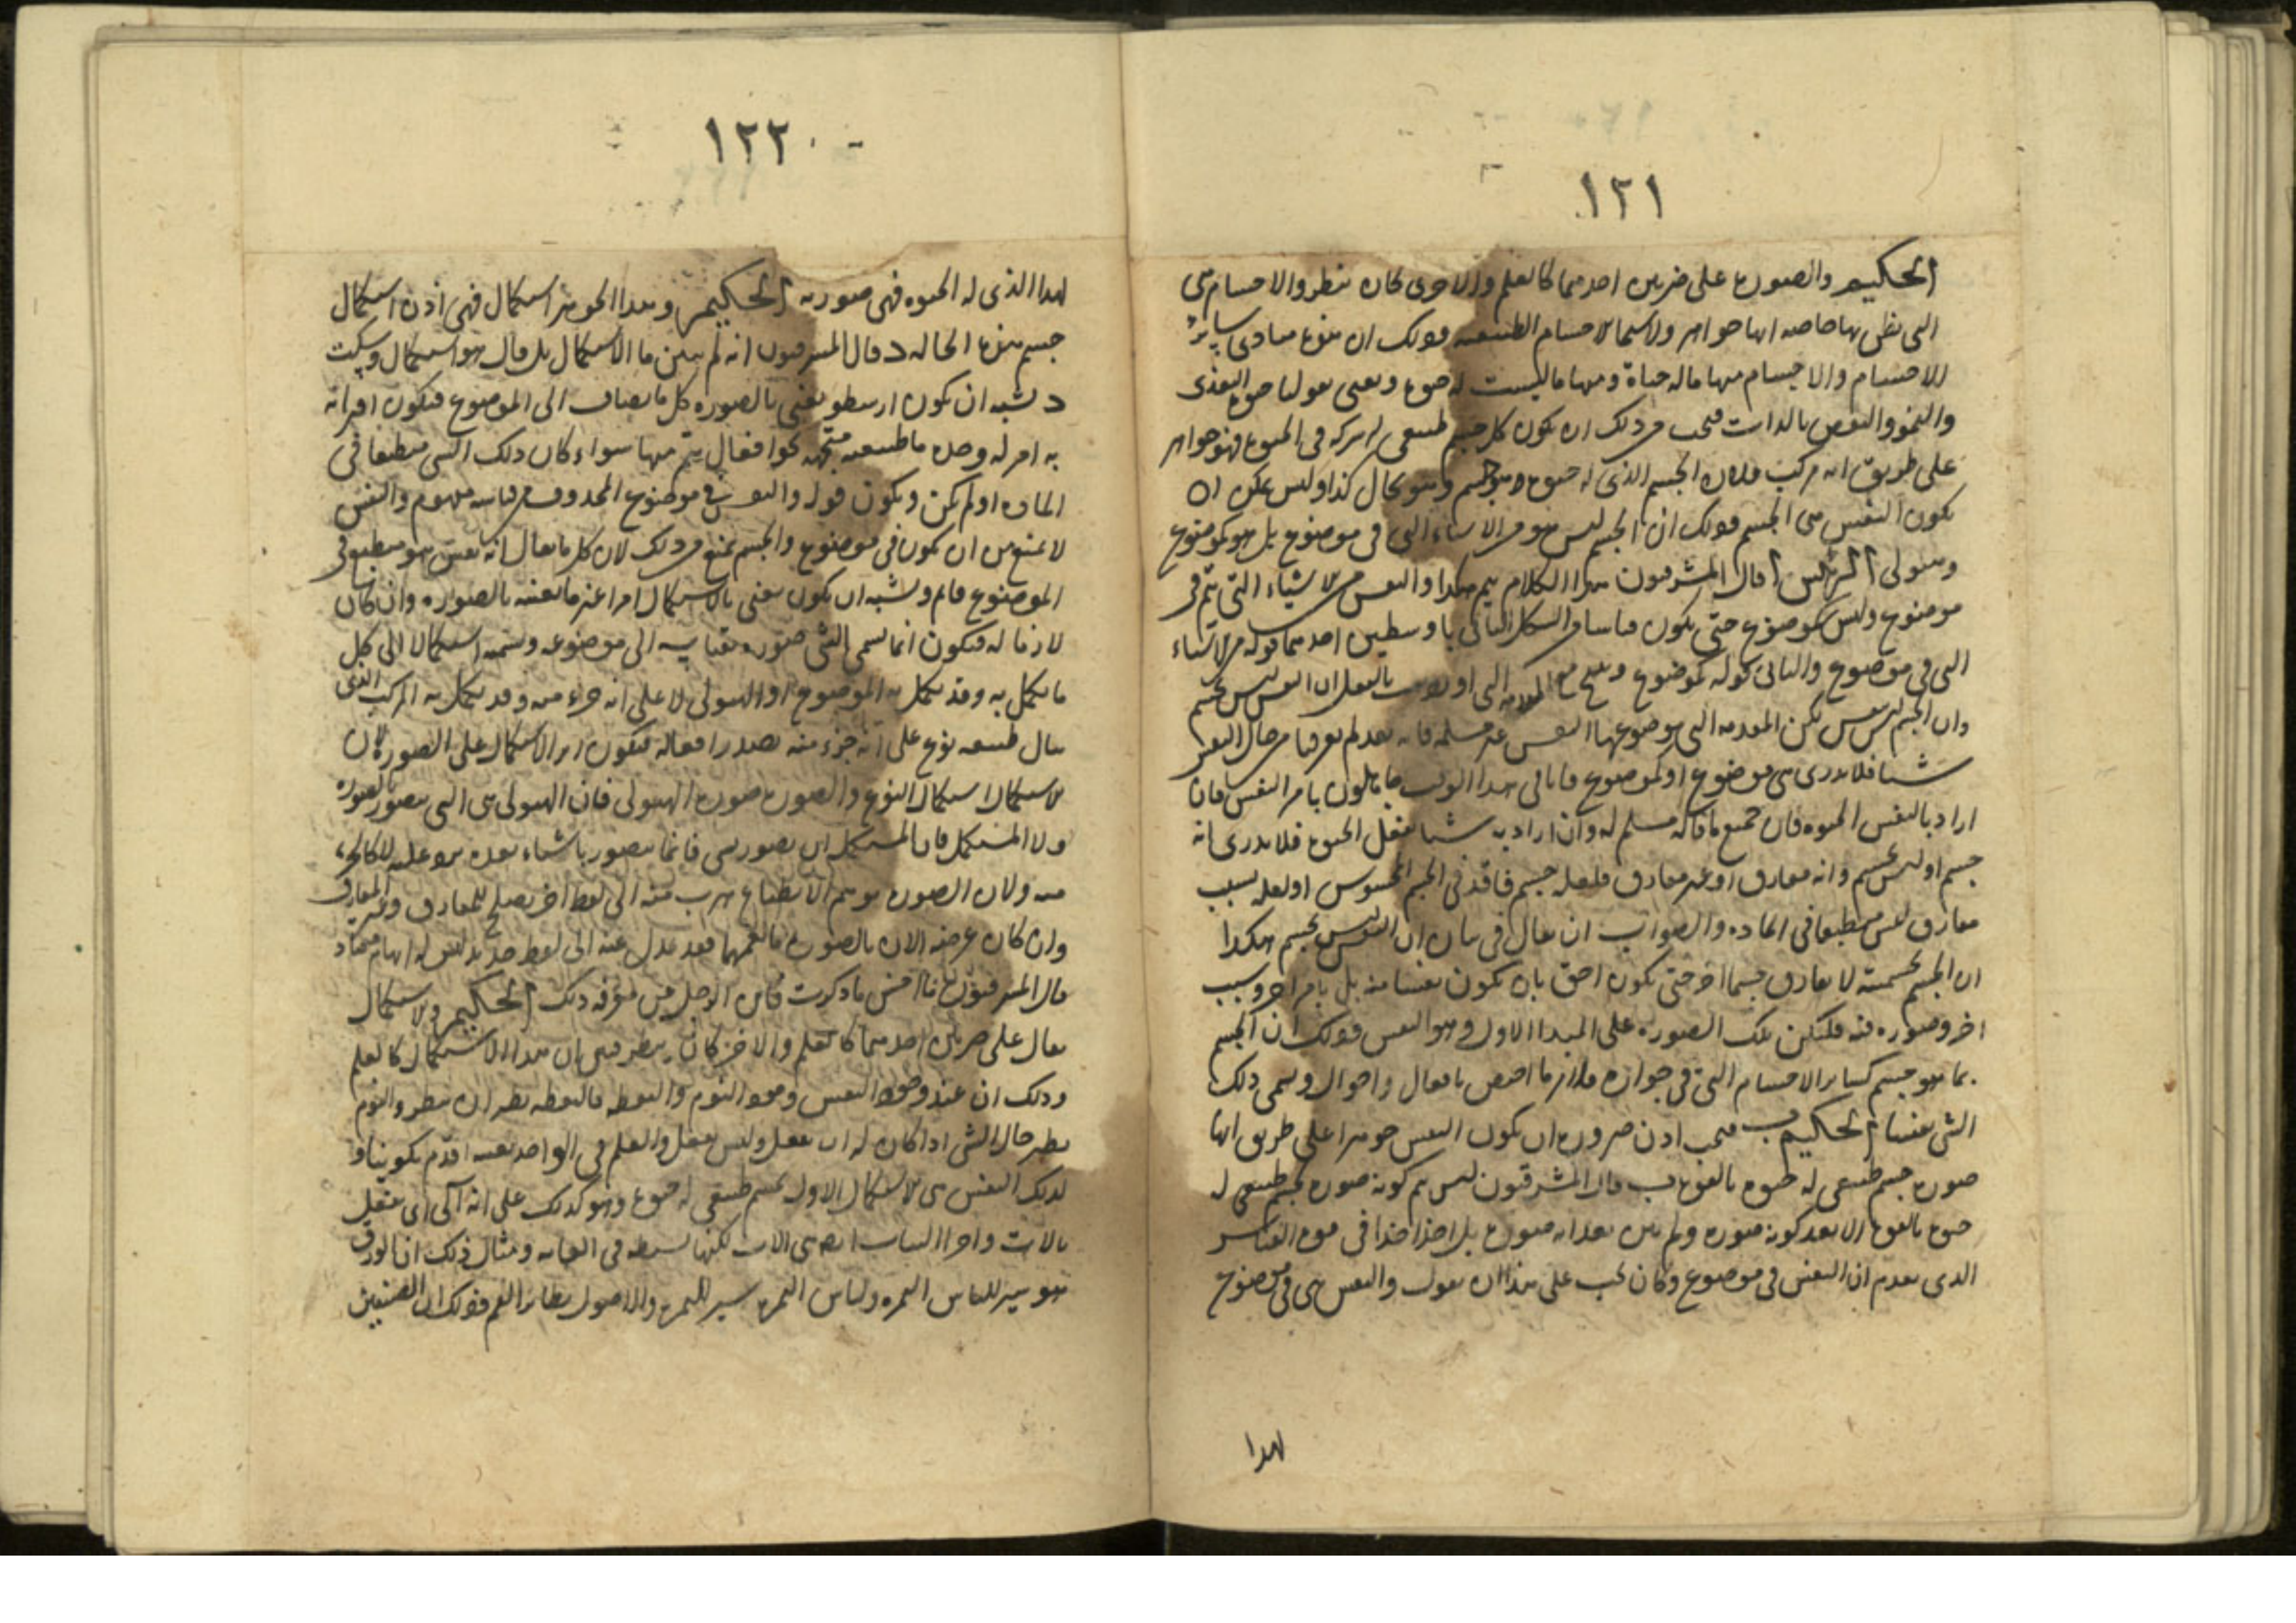 ١٢١
الحكيم والصورة على ضربين احدهما كالعلم والاخرى كان ينظر والاجسام هى
التى يظن بها خاصة انها جواهر ولاسيما الاجسام الطبيعية وذلك ان هذه مبادى سائر
الاجسام والاجسام منها ما له حياة ومنها ما ليست له حيوة ونعنى بقولنا حيوة التغذى
والنمو والنقص بالذات فيجب من ذلك ان يكون كل جسم طبيعى له شركة فى الحيوة فهو جواهر
على طريق انه مركب فلان الجسم الذى له حيوة هو جسم وهو بحال كذا وليس يمكن ان
يكون النفس هى الجسم وذلك ان الجسم ليس هو من الاشياء التى فى موضوع بل هو كموضوع
وهيولى الرئيس قال المشرقيون هذا الكلام يتم هكذا والنفس من الاشياء التى تتم فى
موضوع وليس كموضوع حتى يكون قياسا من الشكل الثانى باوسطين احدهما قوله من الاشياء
التى فى موضوع والثانى قوله كموضوع وينتج من المقدمة التى اوردت بالفعل ان النفس ليس بجسم
وان الجسم ليس بنفس لكن المقدمة التى موضوعها النفس غير مسلمة فانه بعد لم يعرفنا من حال النفس
شيئا فلا ندرى هى موضوع او كموضوع فانا فى هذا الوقت جاهلون بامر النفس فان
اراد بالنفس الحيوة فان جميع ما قاله مسلم له وان اراد به شيئا يفعل الحيوة فلا ندرى انه
جسم او ليس بجسم وانه مفارق او غير مفارق فلعله جسم فاقد فى الجسم المحسوس او لعله بسبب
مفارق ليس منطبعا فى المادة والصواب ان يقال فى بيان ان النفس ليس بجسم هكذا
ان الجسم بجسميته لا يفارق جسما اخر حتى يكون احق بان يكون نفسا منه بل بامر اخر وسبب
اخر وصورة فيه فلتكن تلك الصورة على المبدا الاول وهو النفس وذلك ان الجسم
بما هو جسم كسائر الاجسام التى فى جوازه فلازم ما اختص بافعال واحوال وسمى ذلك
الشى نفسا الحكيم ب فيجب اذن ضرورة ان يكون النفس جوهرا على طريق انها
صورة جسم طبيعى له حيوة بالقوة ب قال المشرقيون ليس يتم كونه صورة لجسم طبيعى له
حيوة بالقوة الا بعد كونه صورة ولم يبين بعد انه صورة بل اخذا اخذا فى قوة القياس
الذى تقدم ان النفس فى موضوع وكان يجب على هذا ان يقول والنفس هى فى موضوع
لهذا
١٢٢
لهذا الذى له الحيوة فهى صورته الحكيم وهذا الجوهر استكمال فهى اذن استكمال
جسم بهذه الحالة د قال المشرقيون انه لم يبين ما الاستكمال بل قال هو استكمال وسكت
د يشبه ان يكون ارسطو يعنى بالصورة كل ما يضاف الى الموضوع فيكون اقترانه
به امر له وحدة ما طبيعية متجهة نحو افعال يتم منها سواء كان ذلك الشى منطبعا فى
المادة او لم يكن ويكون قوله والنفس فى موضوع المحذوف من قياسه مفهوم والنفس
لا يمتنع من ان يكون فى موضوع والجسم يمتنع من ذلك لان كل ما يقال انه نفس هو منطبع فى
الموضوع قائم ويشبه ان يكون يعنى بالاستكمال امرا غير ما يعنيه بالصورة وان كان
لازما له فيكون انما يسمى الشى صورة بقياسه الى موضوعه ويسميه استكمالا الى كل
ما يكمل به وقد يكمل به الموضوع او الهيولى لا على انه جزء منه وقد يكمل به المركب الذى
ينال طبيعة نوع على انه جزء منه يصدر افعاله فيكون اثر الاستكمال على الصورة لان
الاستكمال استكمال النوع والصورة صورة الهيولى فان الهيولى هى التى تتصور بالصورة
ولا المستكمل فان المستكمل ان يصور بشى فانما يتصور باشياء بعده يرد عليه لا كالجزء
منه ولان الصورة توهم الانطباع هرب منه الى لفظ اخر يصلح للمفارق وغير المفارق
وان كان غرضه الان بالصورة ما يعمهما فقد عدل عنه الى لفظ جديد ليس له ابهام معتاد
قال المشرقيون ما احسن ما ذكرت فاين الرجل من معرفة ذلك الحكيم والاستكمال
يقال على ضربين احدهما كالعلم والاخر كان ينظر فبين ان هذا الاستكمال كالعلم
وذلك ان عند وجود النفس وجود النوم واليقظة فاليقظة نظير ان ينظر والنوم
نظير حال الشى اذا كان له ان يفعل وليس يفعل والعلم فى الواحد بعينه اقدم تكوينا و
لذلك النفس هى الاستكمال الاول لجسم طبيعى له حيوة وهو كذلك على انه آلى اى يفعل
بالات واجزاء النبات ايضا هى الات لكنها بسيطة فى الغاية ومثال ذلك ان الورق
هو ستر للباس الثمرة ولباس الثمرة ستر للثمرة والاصول نظائر الفم وذلك ان الصنفين